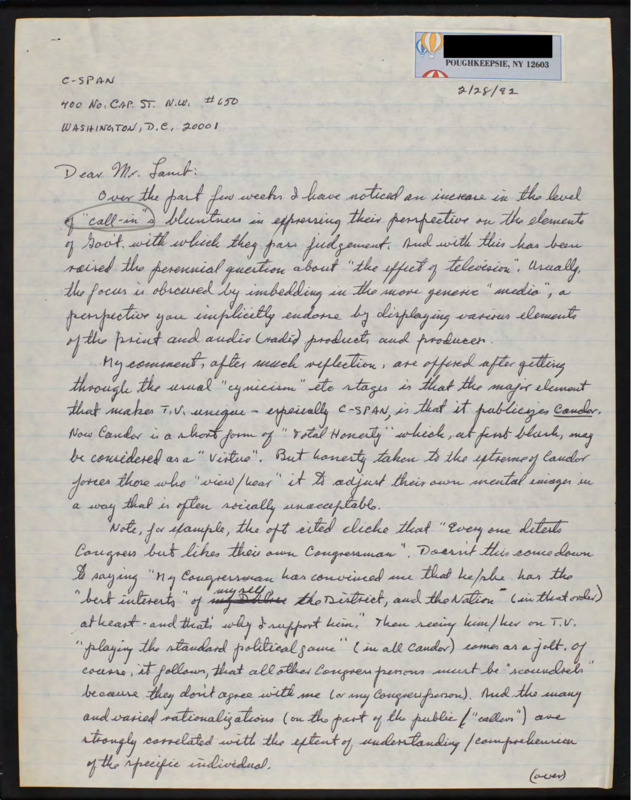 POUGHKEEPSIE, NY 12603
2/28/92
C-SPAN
400 No. CAP. ST. N.W. #650
WASHINGTON, D.C. 20001
Dear Mr. Lamb:
Over the past few weeks I have noticed an increase in the level
of "call-in"s bluntness in expressing their perspective on the elements
of Gov't. with which they pass judgement. And with this has been
raised the perennial question about "the effect of television". Usually,
the focus is obscured by imbedding in the more generic "media", a
perspective you implicitly endorse by displaying various elements
of the print and audio (radio) products and producers.
My comments, after much reflection, are offered after getting
through the usual "cynicism" etc stages is that the major element
that makes T.V. unique - especially C-SPAN, is that it publicizes Candor.
Now Candor is a short form of "Total Honesty" which, at first blush, may
be considered as a "Virtue". But honesty taken to the extreme of Candor
forces those who "view/hear" it to adjust their own mental images in
a way that is often socially unacceptable.
Note, for example, the oft cited cliche that "Everyone detests
Congress but likes their own Congressman". Doesn't this come down
to saying "My Congressman has convinced me that he/she has the
"best interests" of myself the District, and the Nation" (in that order)
at heart - and that's why I support him." Then seeing him/her on T.V.
"playing the standard political game" (in all Candor) comes as a jolt. Of
course, it follows, that all other Congresspersons must be "scoundrels"
because they don't agree with me (or my Congressperson). And the many
and varied rationalizations (on the part of the public / "callers") are
strongly correlated with the extent of understanding/comprehension
of the specific individual.
(over)